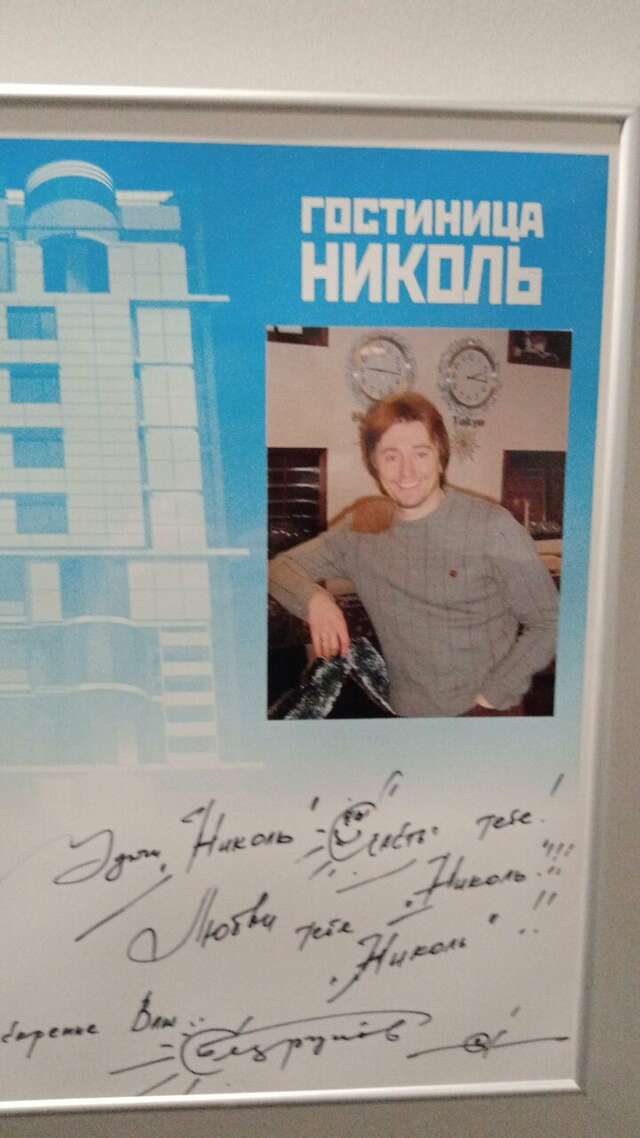 ГОСТИНИЦА
НИКОЛЬ
Tokyo
Удачи, "Николь"! Счастья тебе!
Любви тебе, "Николь"!!!
"Николь"!!
Ваш..
Безруков